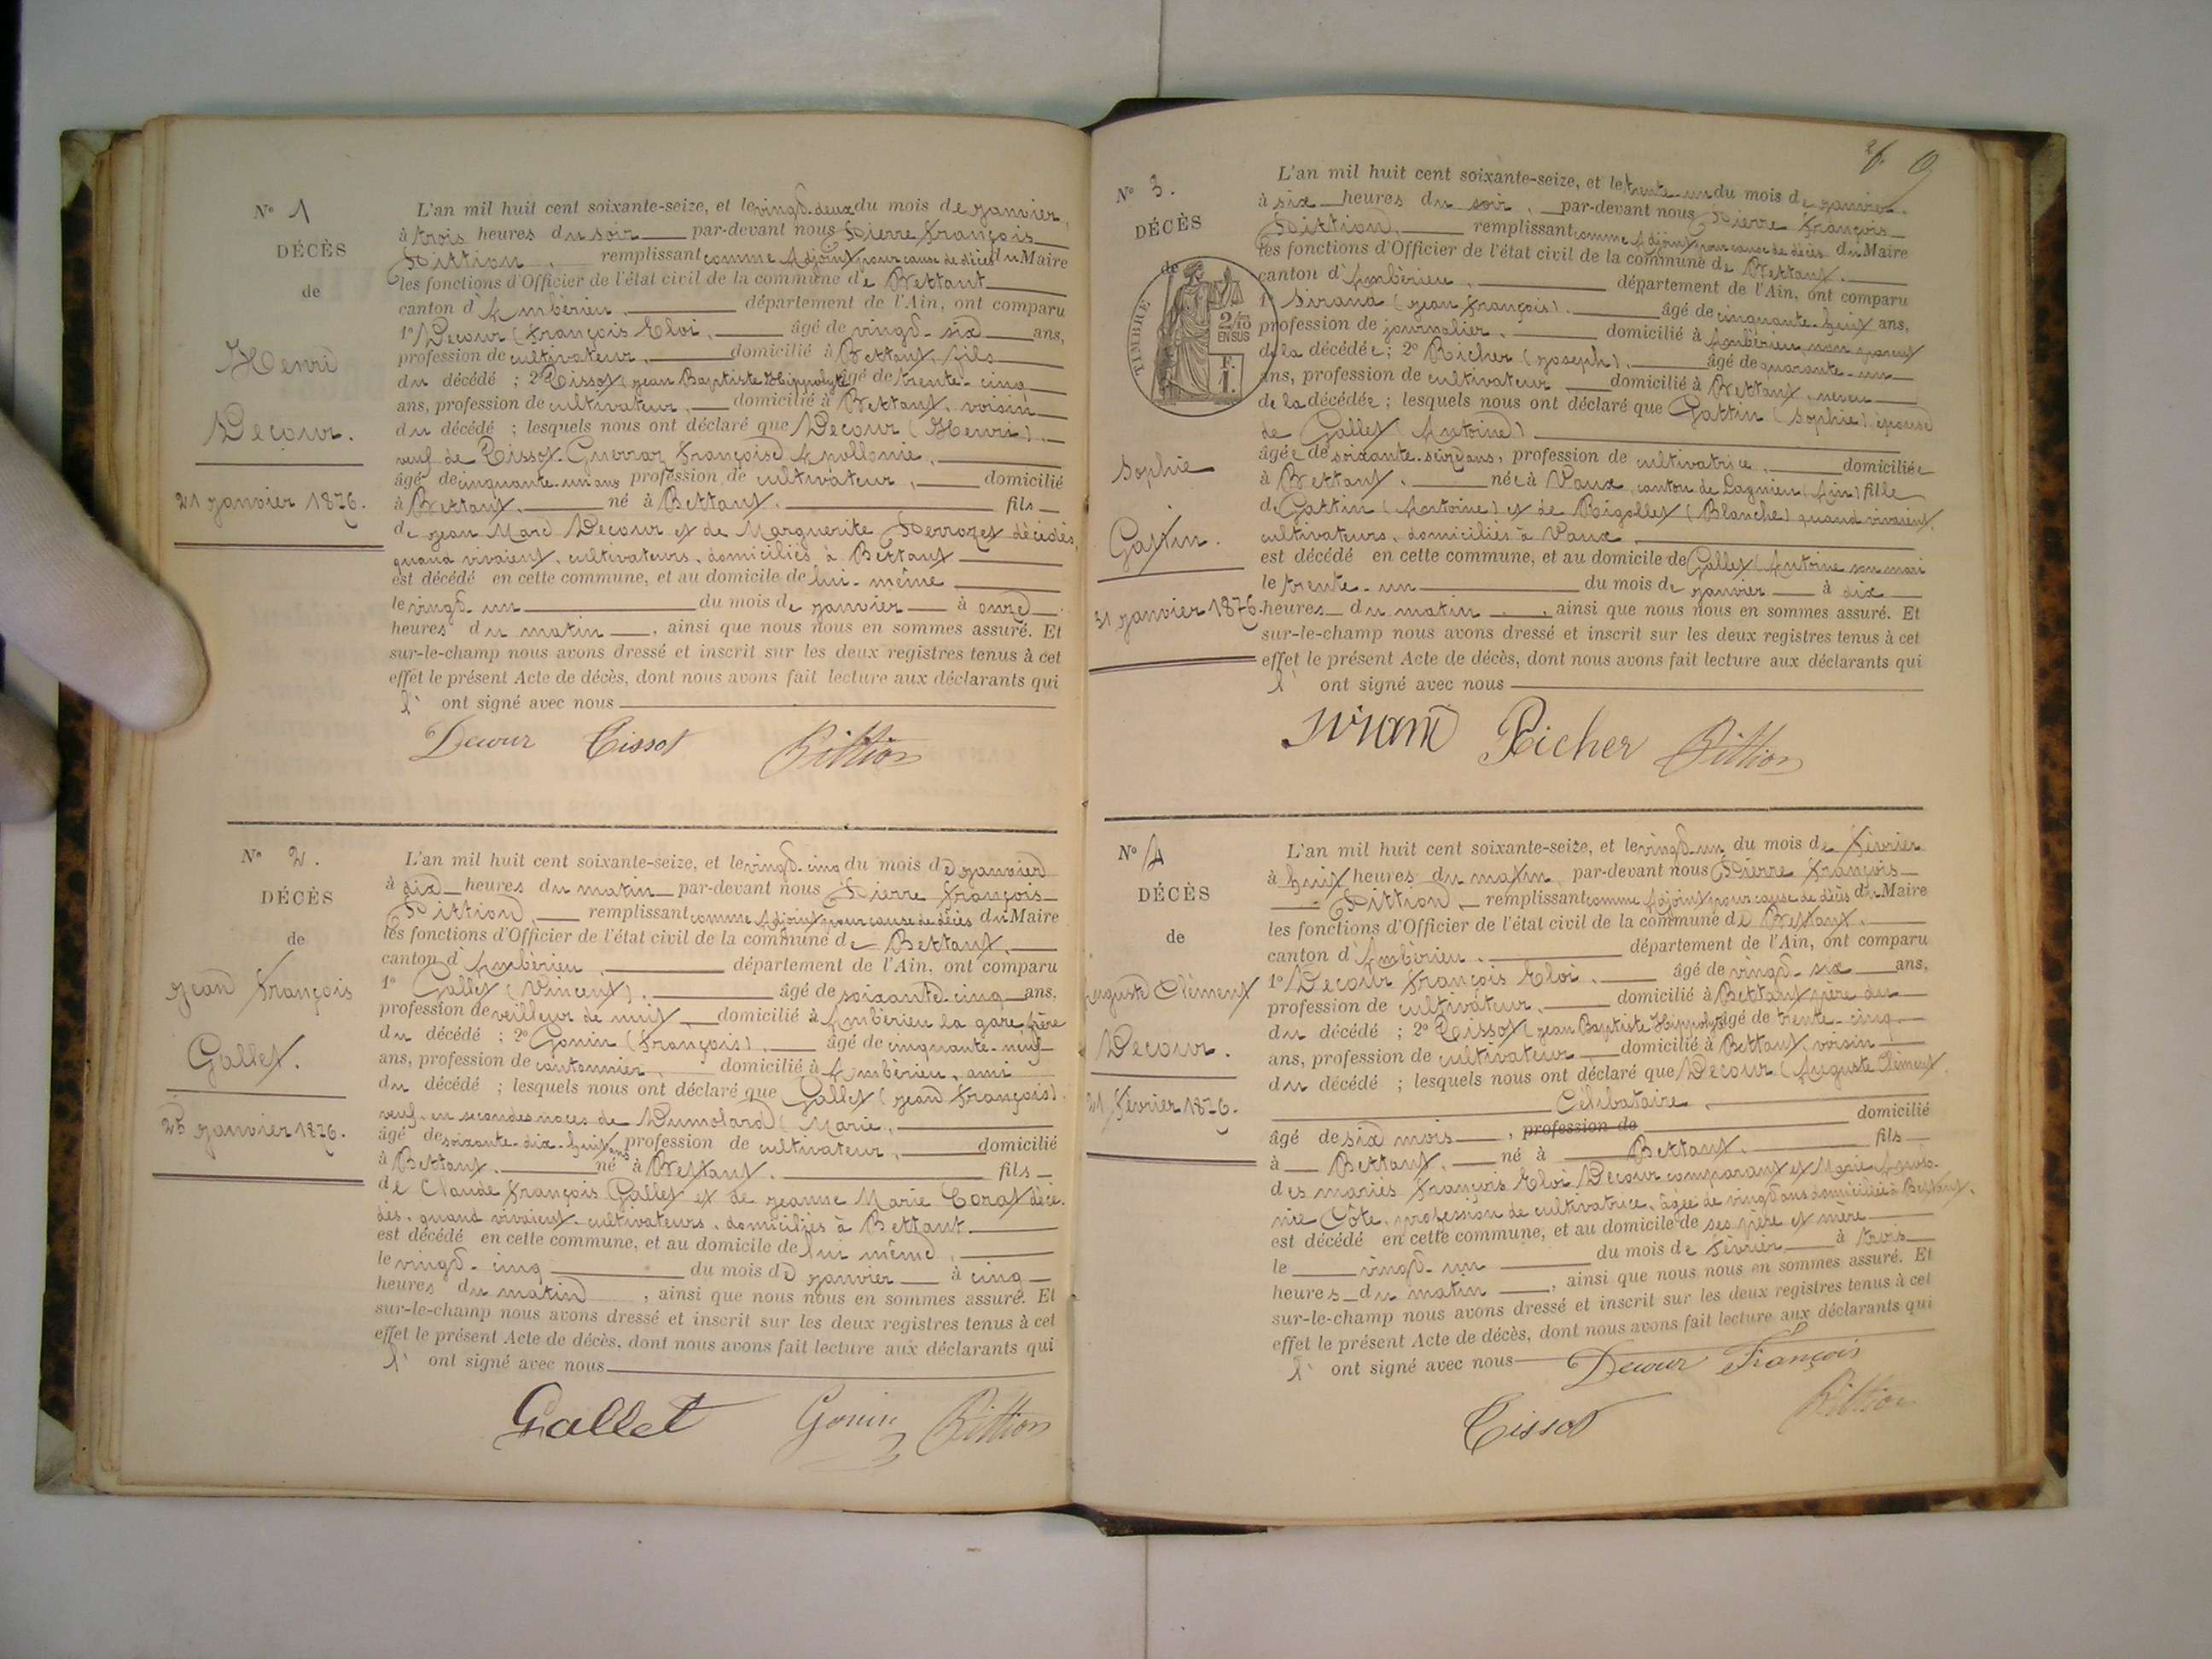 N° 1
DÉCÈS
de
Henri
Decour.
21 janvier 1876.
L'an mil huit cent soixante-seize, et le vingt-deux du mois de janvier,
à trois heures du soir par-devant nous Pierre François
Pittion, remplissant comme Adjoint pour cause de décès du Maire
les fonctions d'Officier de l'état civil de la commune de Bettant
canton d'Ambérieu, département de l'Ain, ont comparu
1° Decour (François Eloi, âgé de vingt-six ans,
profession de cultivateur, domicilié à Bettant, fils
du décédé ; 2° Tissot (jean Baptiste Hippolyte âgé de trente-cinq
ans, profession de cultivateur, domicilié à Bettant, voisin
du décédé ; lesquels nous ont déclaré que Decour (Henri),
veuf de Tissot-Guerraz Françoise Apollonie,
âgé de cinquante-un ans profession de cultivateur, domicilié
à Bettant, né à Bettant, fils
de jean Marc Decour et de Marguerite Perrozet décédés,
quand vivaient, cultivateurs, domiciliés à Bettant
est décédé en cette commune, et au domicile de lui-même
le vingt-un du mois de janvier à onze
heures du matin, ainsi que nous nous en sommes assuré. Et
sur-le-champ nous avons dressé et inscrit sur les deux registres tenus à cet
effet le présent Acte de décès, dont nous avons fait lecture aux déclarants qui
l' ont signé avec nous
Decour Tissot Pittion
N° 2.
DÉCÈS
de
jean François
Gallet.
25 janvier 1876.
L'an mil huit cent soixante-seize, et le vingt-cinq du mois de janvier
à dix heures du matin par-devant nous Pierre François
Pittion, remplissant comme Adjoint pour cause de décès du Maire
les fonctions d'Officier de l'état civil de la commune de Bettant,
canton d'Ambérieu, département de l'Ain, ont comparu
1° Gallet (Vincent), âgé de soixante-cinq ans,
profession de veilleur de nuit, domicilié à Ambérieu la gare, frère
du décédé ; 2° Gonin (François), âgé de cinquante-neuf
ans, profession de cantonnier, domicilié à Ambérieu, ami
du décédé ; lesquels nous ont déclaré que Gallet (jean François),
veuf en secondes noces de Dumolard (Marie,
âgé de soixante-dix-huit ans profession de cultivateur, domicilié
à Bettant, né à Bettant, fils
de Claude François Gallet et de jeanne Marie Corat décé-
dés, quand vivaient, cultivateurs, domiciliés à Bettant
est décédé en cette commune, et au domicile de lui même,
le vingt-cinq du mois de janvier à cinq
heures du matin, ainsi que nous nous en sommes assuré. Et
sur-le-champ nous avons dressé et inscrit sur les deux registres tenus à cet
effet le présent Acte de décès, dont nous avons fait lecture aux déclarants qui
l' ont signé avec nous
Gallet Gonin Pittion
N° 3.
DÉCÈS
de
TIMBRE
2/10
EN SUS
F.
1.
Sophie
Gattin.
31 janvier 1876.
L'an mil huit cent soixante-seize, et le trente-un du mois de janvier,
à six heures du soir, par-devant nous Pierre François
Pittion, remplissant comme Adjoint pour cause de décès du Maire
les fonctions d'Officier de l'état civil de la commune de Bettant,
canton d'Ambérieu, département de l'Ain, ont comparu
1° Sirand (jean François), âgé de cinquante-huit ans,
profession de journalier, domicilié à Ambérieu, non parent
de la décédée ; 2° Richer (joseph), âgé de quarante-un
ans, profession de cultivateur domicilié à Bettant, neveu
de la décédée ; lesquels nous ont déclaré que Gattin (Sophie) épouse
de Gallet (Antoine)
âgée de soixante-seize ans, profession de cultivatrice, domiciliée
à Bettant, née à Vaux, canton de Lagnieu (Ain) fille
de Gattin (Antoine) et de Rigollet (Blanche) quand vivaient,
cultivateurs, domiciliés à Vaux,
est décédé en cette commune, et au domicile de Gallet (Antoine son mari
le trente-un du mois de janvier à dix
heures du matin, ainsi que nous nous en sommes assuré. Et
sur-le-champ nous avons dressé et inscrit sur les deux registres tenus à cet
effet le présent Acte de décès, dont nous avons fait lecture aux déclarants qui
l' ont signé avec nous
Sirand Richer Pittion
N° 4
DÉCÈS
de
Auguste Clément
Decour.
21 Février 1876.
L'an mil huit cent soixante-seize, et le vingt-un du mois de Février
à huit heures du matin, par-devant nous Pierre François
Pittion, remplissant comme Adjoint pour cause de décès du Maire
les fonctions d'Officier de l'état civil de la commune de Bettant,
canton d'Ambérieu, département de l'Ain, ont comparu
1° Decour François Eloi, âgé de vingt-six ans,
profession de cultivateur, domicilié à Bettant père du
du décédé ; 2° Tissot (jean Baptiste Hippolyte âgé de trente-cinq
ans, profession de cultivateur domicilié à Bettant, voisin
du décédé ; lesquels nous ont déclaré que Decour (Auguste Clément,
Célibataire,
âgé de six mois, profession de domicilié
à Bettant, né à Bettant, fils
des mariés François Eloi Decour comparant et Marie Apolo-
nie Côte, profession de cultivatrice, âgée de vingt ans domiciliée à Bettant,
est décédé en cette commune, et au domicile de ses père et mère
le vingt-un du mois de Février à trois
heures du matin, ainsi que nous nous en sommes assuré. Et
sur-le-champ nous avons dressé et inscrit sur les deux registres tenus à cet
effet le présent Acte de décès, dont nous avons fait lecture aux déclarants qui
l' ont signé avec nous Decour François
Tissot Pittion